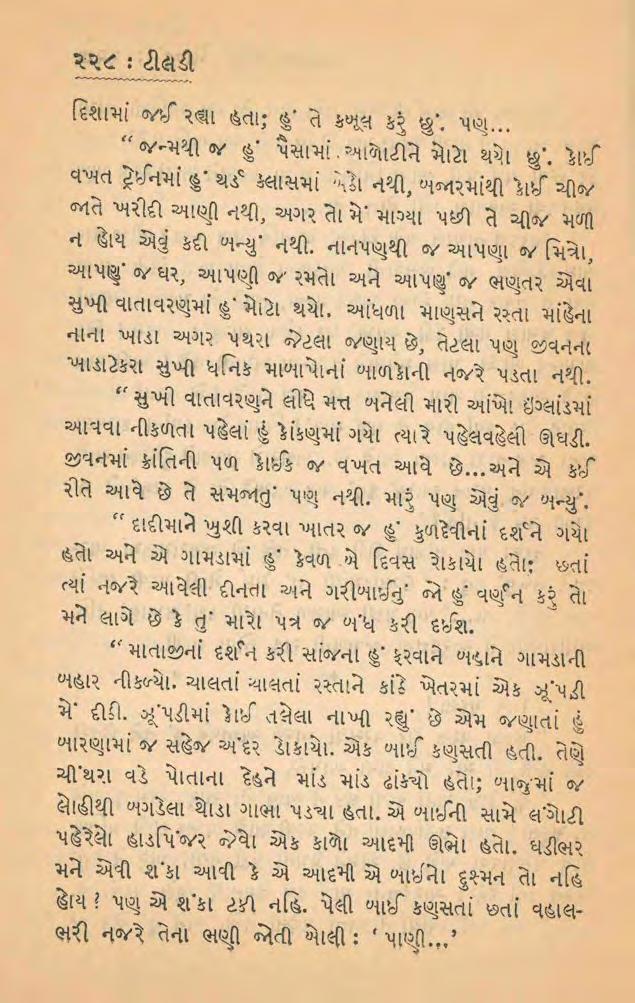 ૨૨૮ : ટીલડી
દિશામાં જઈ રહ્યા હતા; હું તે કબૂલ કરું છું. પણ...
“ જન્મથી જ હું પૈસામાં આળોટીને મોટો થયો છું. કોઈ
વખત ટ્રેઈનમાં હું થર્ડ ક્લાસમાં બેઠો નથી, બજારમાંથી કોઈ ચીજ
જાતે ખરીદી આણી નથી, અગર તો મેં માગ્યા પછી તે ચીજ મળી
ન હોય એવું કદી બન્યું નથી. નાનપણથી જ આપણા જ મિત્રો,
આપણું જ ઘર, આપણી જ રમતો અને આપણું જ ભણતર એવા
સુખી વાતાવરણમાં હું મોટો થયો. આંધળા માણસને રસ્તા માંહેના
નાના ખાડા અગર પથરા જેટલા જણાય છે, તેટલા પણ જીવનના
ખાડાટેકરા સુખી ધનિક માબાપોનાં બાળકોની નજરે પડતા નથી.
“ સુખી વાતાવરણને લીધે મત્ત બનેલી મારી આંખો ઇંગ્લાંડમાં
આવવા નીકળતા પહેલાં હું કોંકણમાં ગયો ત્યારે પહેલવહેલી ઊઘડી.
જીવનમાં ક્રાંતિની પળ કોઈક જ વખત આવે છે...અને એ કઈ
રીતે આવે છે તે સમજાતું પણ નથી. મારું પણ એવું જ બન્યું.
“ દાદીમાને ખુશી કરવા ખાતર જ હું કુળદેવીનાં દર્શને ગયો
હતો અને એ ગામડામાં હું કેવળ બે દિવસ રોકાયો હતો; છતાં
ત્યાં નજરે આવેલી દીનતા અને ગરીબાઈનું જો હું વર્ણન કરું તો
મને લાગે છે કે તું મારો પત્ર જ બંધ કરી દઈશ.
“ માતાજીનાં દર્શન કરી સાંજના હું ફરવાને બહાને ગામડાની
બહાર નીકળ્યો. ચાલતાં ચાલતાં રસ્તાને કાંઠે ખેતરમાં એક ઝૂંપડી
મેં દીઠી. ઝૂંપડીમાં કોઈ તબેલા નાખી રહ્યું છે એમ જણાતાં હું
બારણામાં જ સહેજ અંદર ડોકાયો. એક બાઈ કણસતી હતી. તેણે
ચીંથરા વડે પોતાના દેહને માંડ માંડ ઢાંક્યો હતો; બાજુમાં જ
લોહીથી બગડેલા થોડા ગાભા પડ્યા હતા. એ બાઈની સામે લંગોટી
પહેરેલો હાડપિંજર જેવો એક કાળો આદમી ઊભો હતો. ઘડીભર
મને એવી શંકા આવી કે એ આદમી એ બાઈનો દુશ્મન તો નહિ
હોય ? પણ એ શંકા ટકી નહિ. પેલી બાઈ કણસતાં છતાં વહાલ-
ભરી નજરે તેના ભણી જોતી બોલી : ‘ પાણી...’